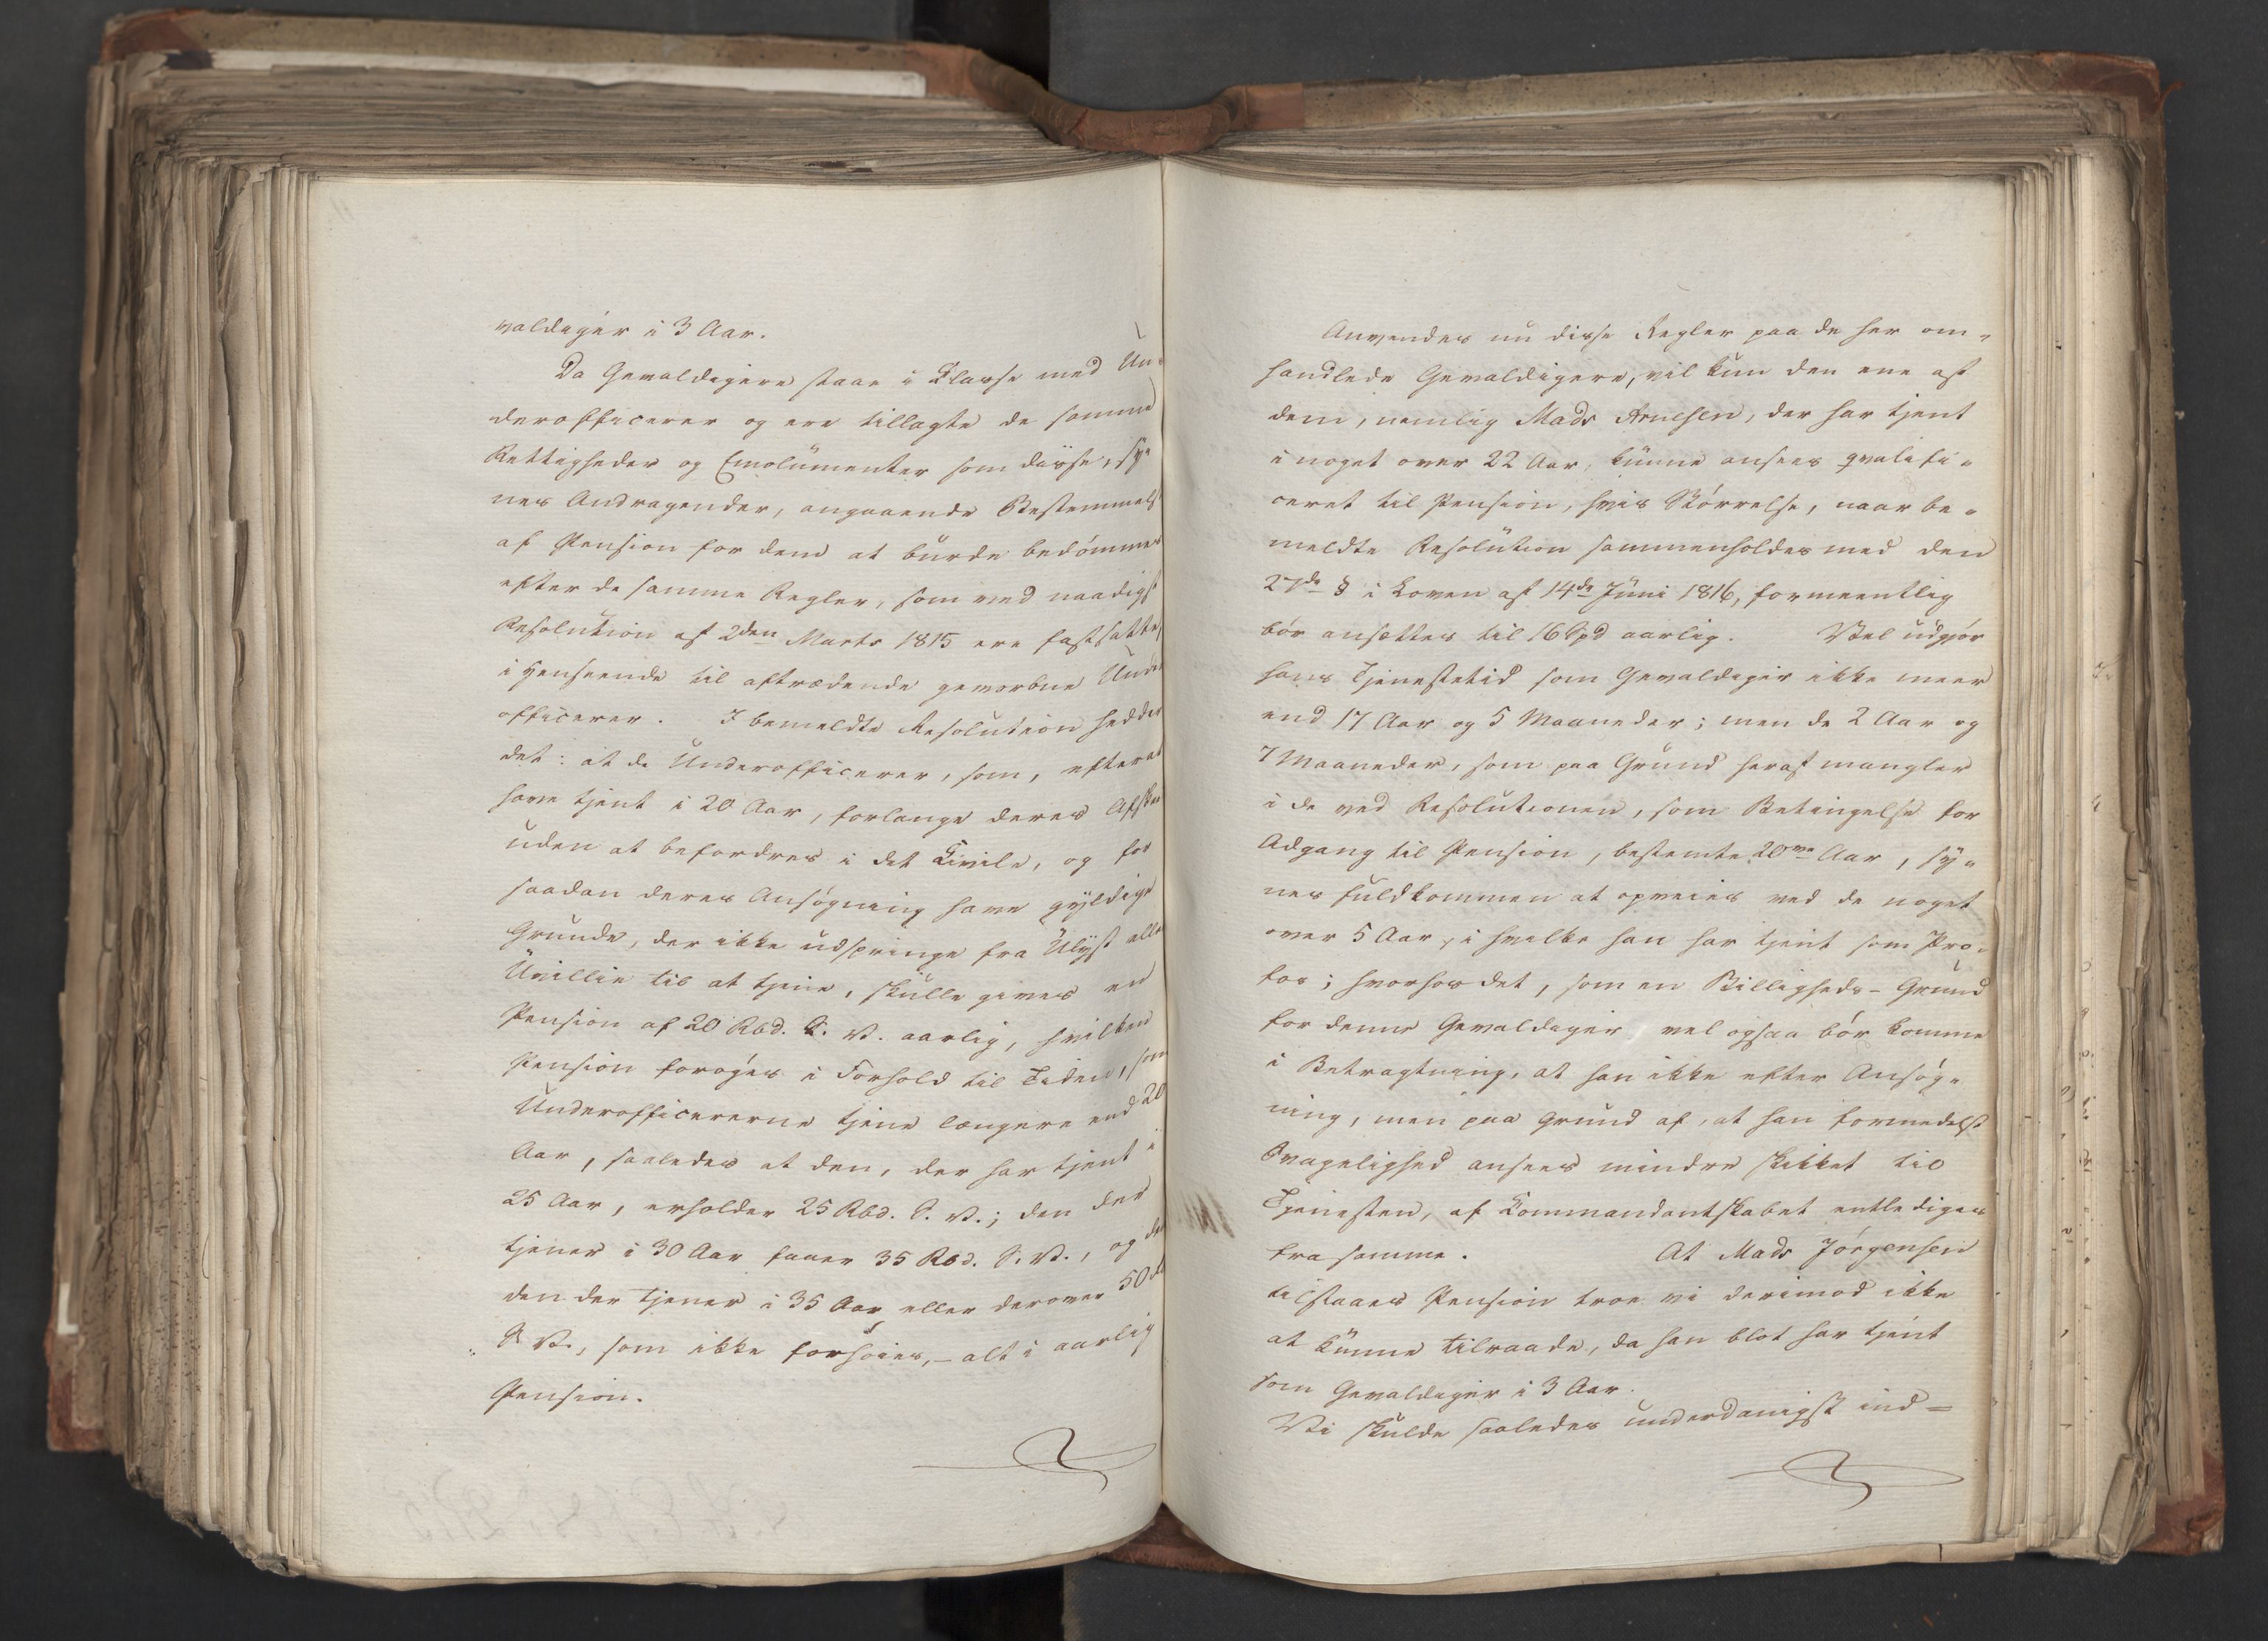 valdigér i 3 Aar.
Da Gevaldigere staae i Classe med Un-
derofficerer og ere tillagte de samme
Rettigheder og Emolumenter som disse, sy-
nes Andragender, angaaende Bestemmelse
af Pension for dem at burde bedømmes
efter de samme Regler, som ved naadigst
Resolution af 2den Marts 1815 ere fastsatte,
i Henseende til aftrædende gevorbne Under
officerer. I bemeldte Resolution hedder
det: at de Underofficerer, som, efterat
have tjent i 20 Aar, forlange deres Afskee
uden at befordres i det Civile, og for
saadan deres Ansøgning have gyldige
Grunde, der ikke udspringe fra Ulyst eller
Uvillie til at tjene, skulle gives en
Pension af 20 Rbd. S. V. aarlig, hvilken
Pension forøges i Forhold til Tiden, som
Underofficererne tjene længere end 20
Aar, saaledes at den, der har tjent i
25 Aar, erholder 25 Rbd. S. V.; den der
tjener i 30 Aar faaer 35 Rbd. S. V., og
den der tjener i 35 Aar eller derover 50
S. V., som ikke forhøies, - alt i aarlig
Pension.
Anvendes nu disse Regler paa de her om-
handlede Gevaldigere, vil kun den ene af
dem, nemlig Mads Arnesen, der har tjent
i noget over 22 Aar, kunne ansees qvalifi-
ceret til Pension, hvis Størrelse, naar be-
meldte Resolution sammenholdes med den
27de § i Loven af 14de Juni 1816, formeentlig
bør ansættes til 16 Spd aarlig. Vel udgjør
hans Tjenestetid som Gevaldigér ikke meer
end 17 Aar og 5 Maaneder; men de 2 Aar og
7 Maaneder, som paa Grund heraf mangler
i de ved Resolutionen, som Betingelse for
Adgang til Pension, bestemte 20ve Aar, sy-
nes fuldkommen at opveies ved de noget
over 5 Aar, i hvilke han har tjent som Pro-
fos; hvorhos det, som en Billigheds-Grund
for denne Gevaldigér vel ogsaa bør komme
i Betragtning, at han ikke efter Ansøg-
ning, men paa Grund af, at han formedelst
Svagelighed ansees mindre skikket til
Tjenesten, af Commandantskabet entlediges
fra samme. At Mads Jörgensen
tilstaaes Pension troe vi derimod ikke
at kunne tilraade, da han blot har tjent
som Gevaldigér i 3 Aar.
Vi skulde saaledes underdanigst ind-